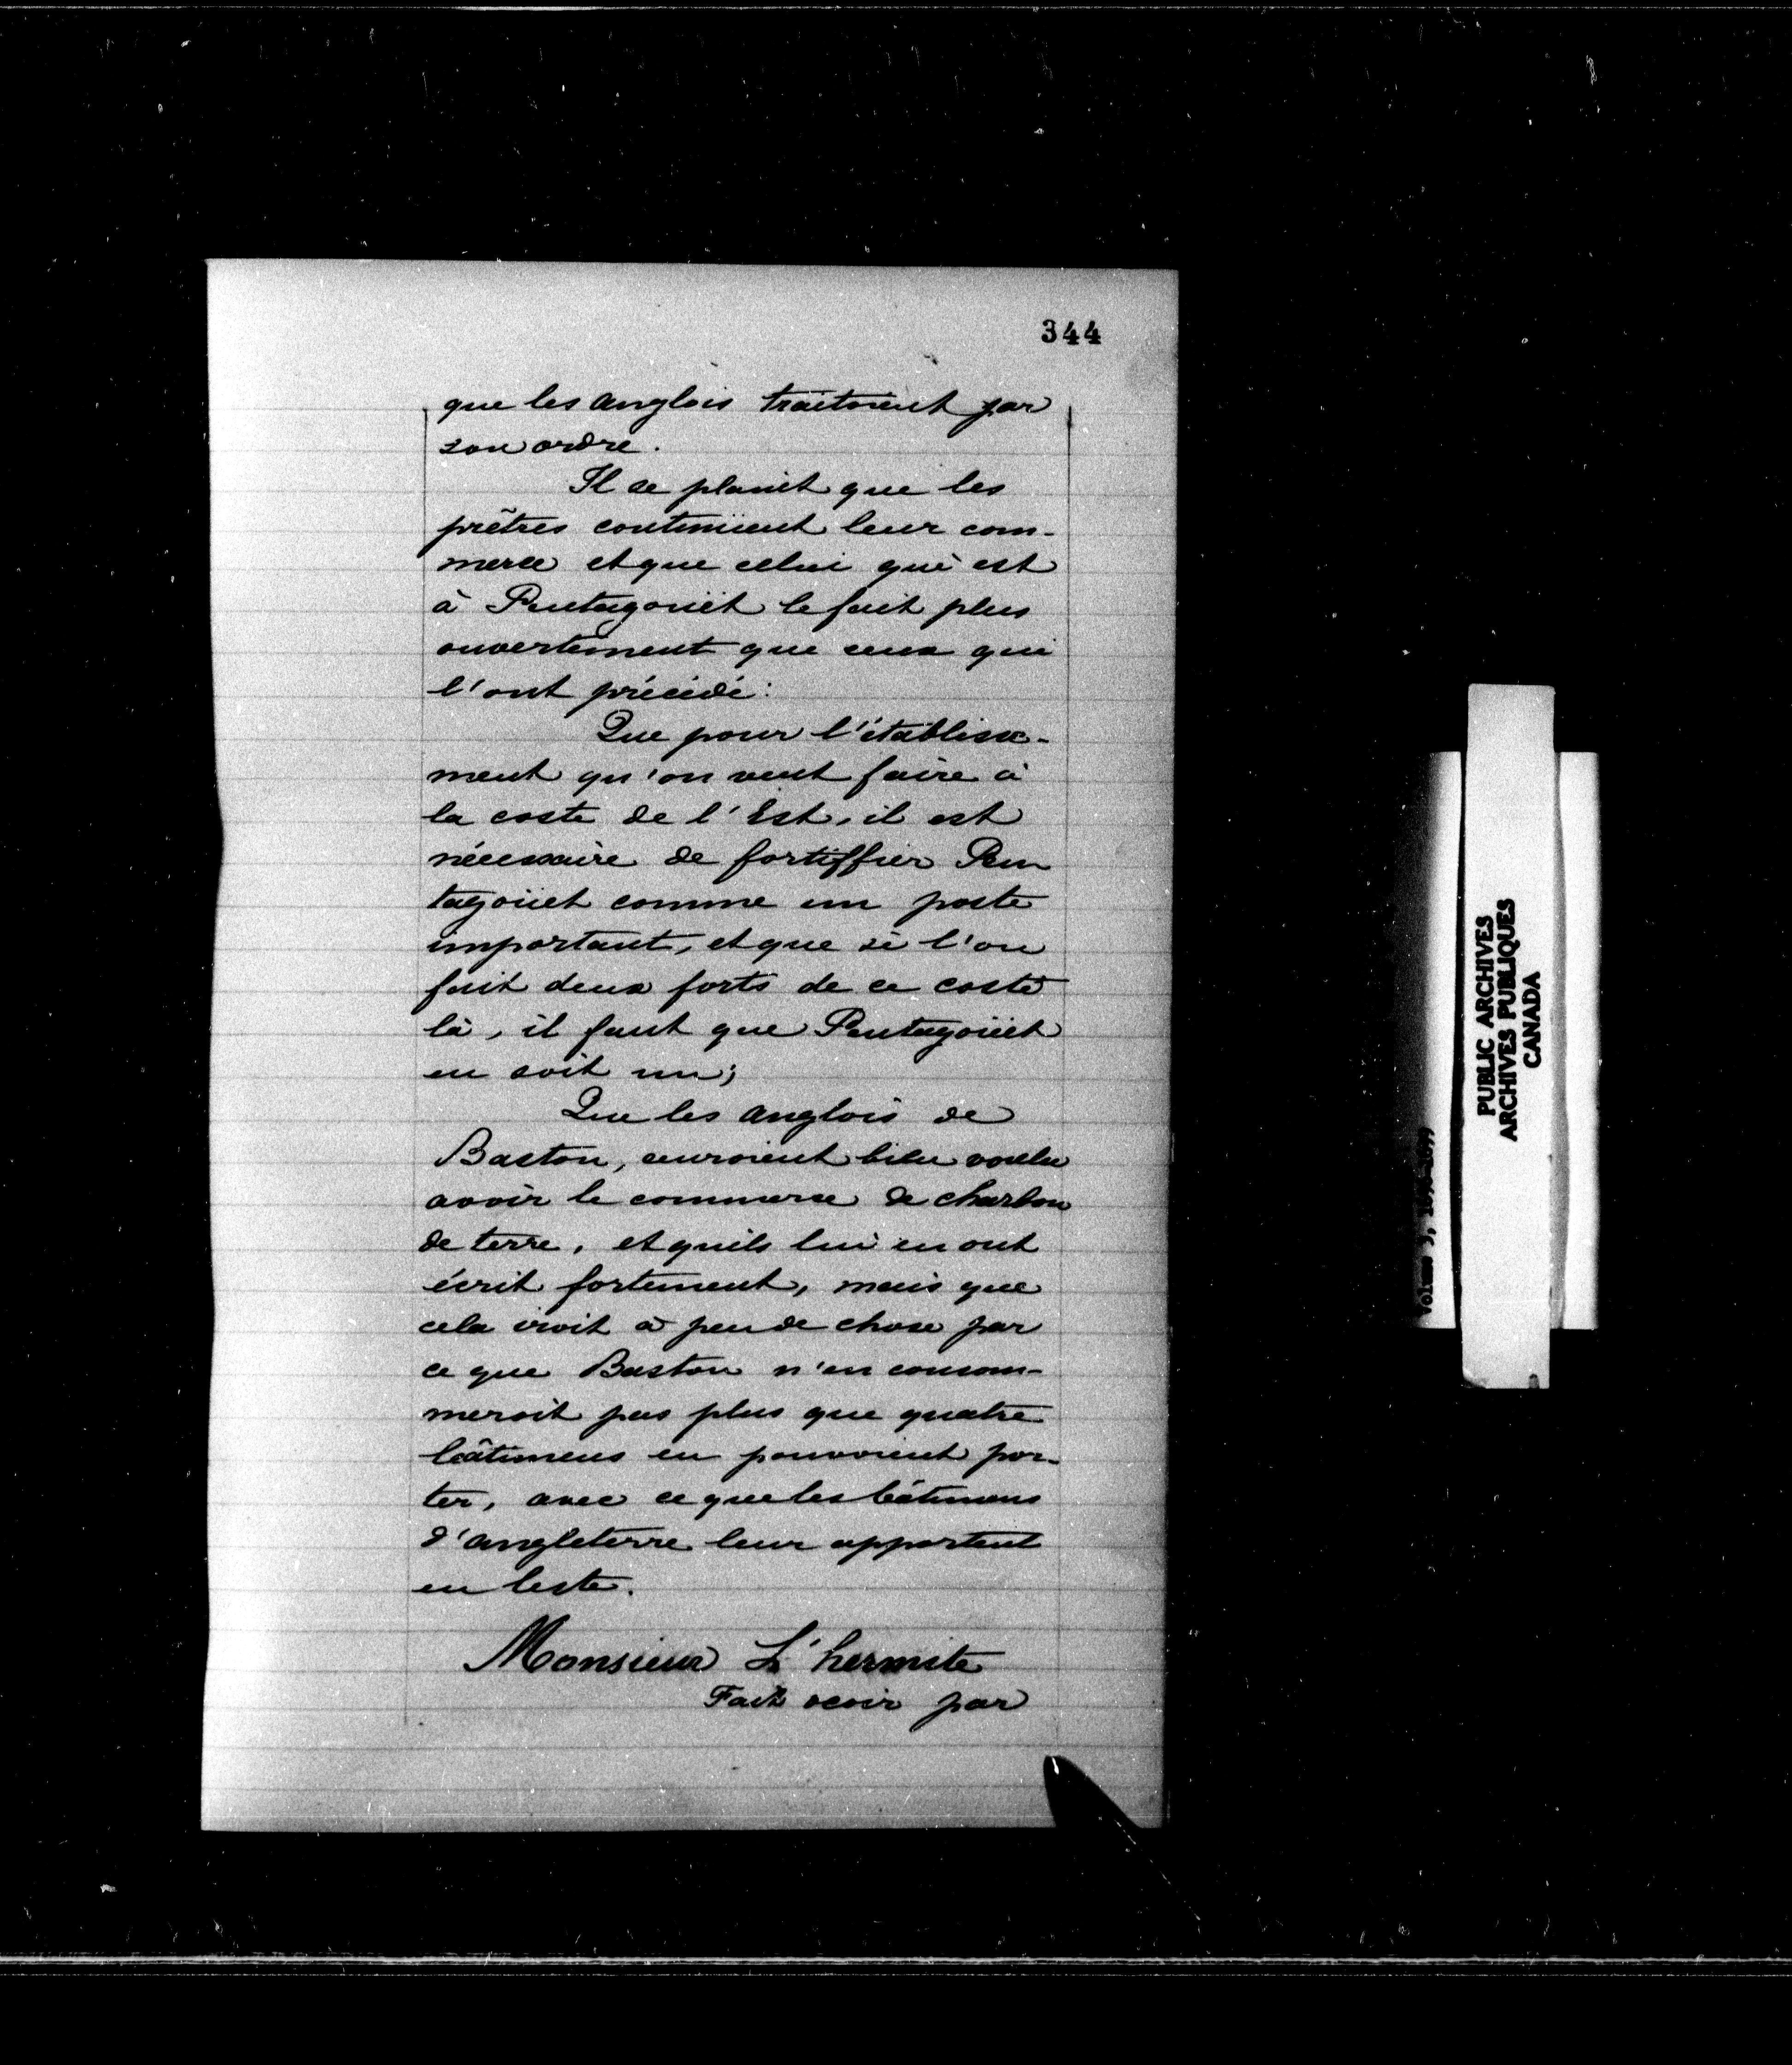 344
que les anglois traitoient par
son ordre.
Il se plaint que les
prêtres continüent leur com-
merce et que celui qui est
à Pentagoüet le fait plus
ouvertement que ceux qui
l'ont précédé:
Que pour l'établisse-
ment qu'on veut faire à
la coste de l'Est, il est
nécessaire de fortiffier Pen
tagoüet comme un poste
important, et que si l'on
fait deux forts de ce costé
là, il faut que Pentagoüet
en soit un;
Que les anglois de
Baston, auroient bien voulu
avoir le commerce de charbon
de terre, et quils lui en ont
écrit fortement, mais que
cela iroit à peu de chose par
ce que Baston n'en consom-
meroit pas plus que quatre
bâtimens en pouvoient por-
ter, avec ce que les bâtimens
d'angleterre leur apportent
en leste.
Monsieur L'hermite
Fait voir par
PUBLIC ARCHIVES
ARCHIVES PUBLIQUES
CANADA
Volume 3,